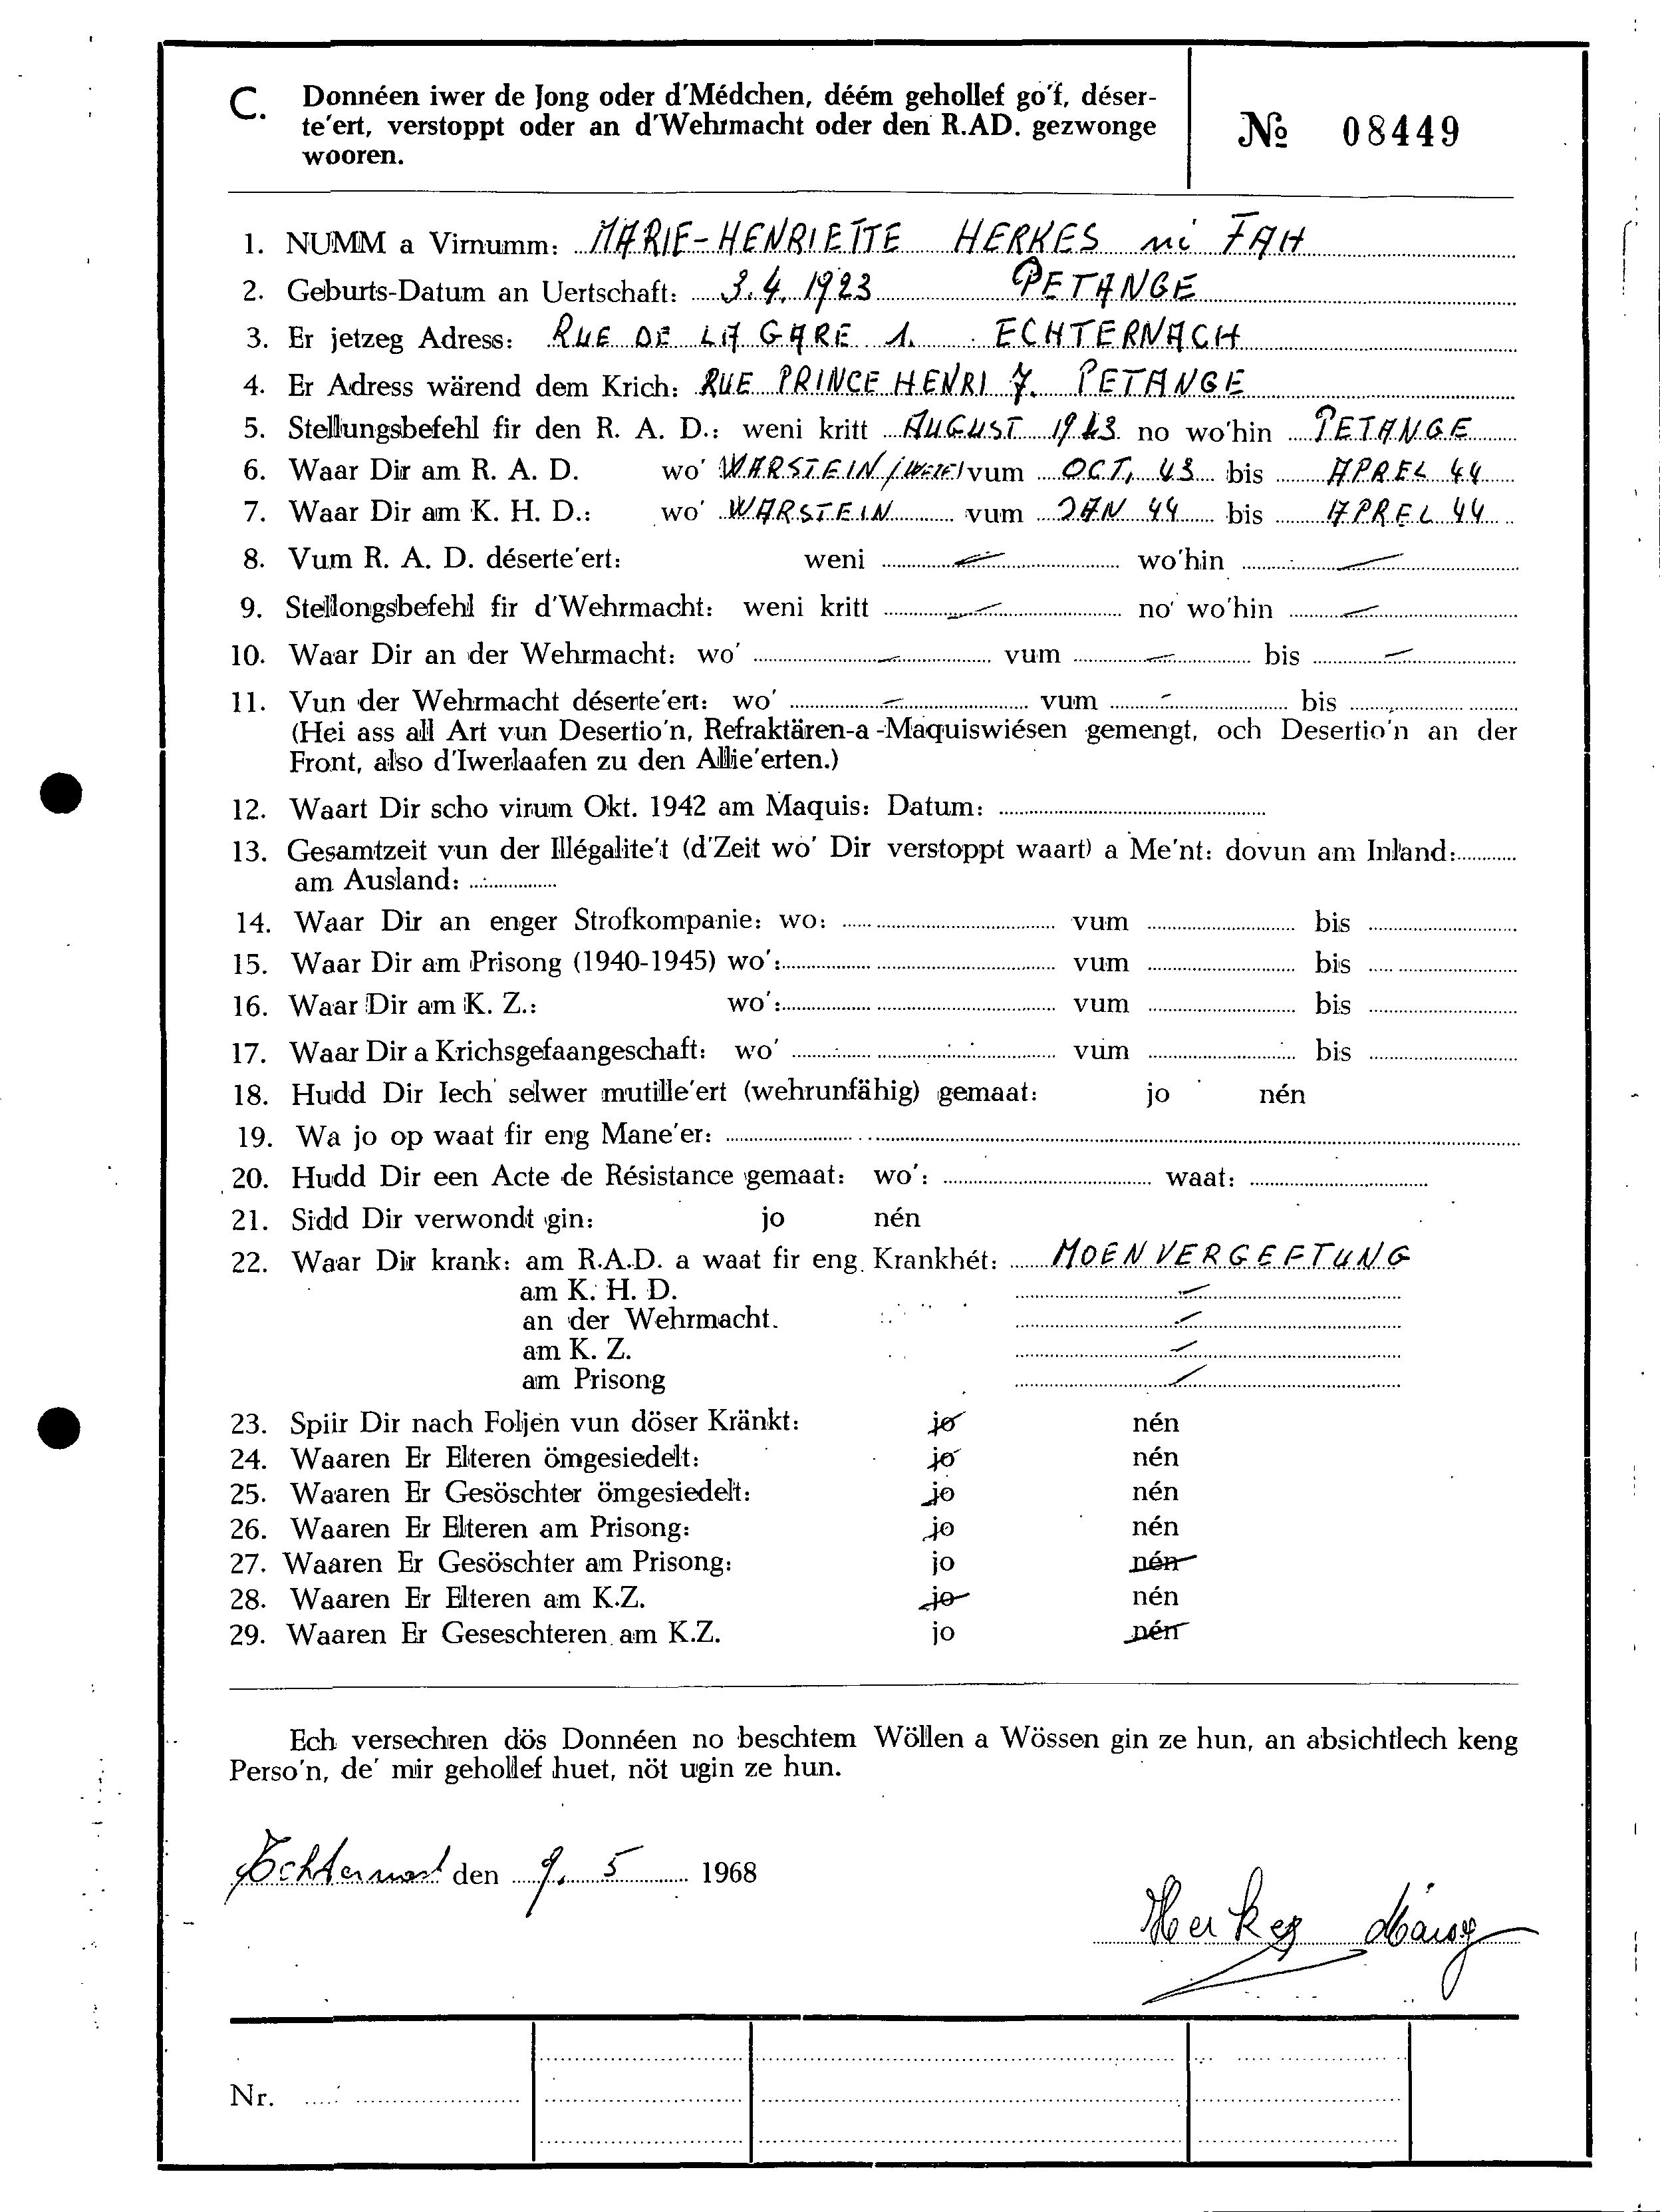 C. Donnéen iwer de Jong oder d'Médchen, déém gehollef go'f, déser-
te'ert, verstoppt oder an d'Wehrmacht oder den R.AD. gezwonge
wooren.
№ 08449
1. NUMM a Virnumm: MARIE-HENRIETTE HERKES né FAH
2. Geburts-Datum an Uertschaft: 3.4.1923 PETANGE
3. Er jetzeg Adress: RUE DE LA GARE 1. ECHTERNACH
4. Er Adress wärend dem Krich: RUE PRINCE HENRI 7. PETANGE
5. Stellungsbefehl fir den R. A. D.: weni kritt AUGUST 1943 no wo'hin PETANGE
6. Waar Dir am R. A. D. wo' WARSTEIN vum OCT. 43 bis APREL 44
7. Waar Dir am K. H. D.: wo' WARSTEIN vum JAN 44 bis APREL 44
8. Vum R. A. D. déserte'ert: weni wo'hin
9. Stellongsbefehl fir d'Wehrmacht: weni kritt no' wo'hin
10. Waar Dir an der Wehrmacht: wo' vum bis
11. Vun der Wehrmacht déserte'ert: wo' vum bis
(Hei ass all Art vun Desertio'n, Refraktären-a-Maquiswiésen gemengt, och Desertio'n an der
Front, also d'Iwerlaafen zu den Allie'erten.)
12. Waart Dir scho virum Okt. 1942 am Maquis: Datum:
13. Gesamtzeit vun der Illégalite't (d'Zeit wo' Dir verstoppt waart) a Me'nt: dovun am Inland:
am Ausland:
14. Waar Dir an enger Strofkompanie: wo: vum bis
15. Waar Dir am Prisong (1940-1945) wo': vum bis
16. Waar Dir am K. Z.: wo': vum bis
17. Waar Dir a Krichsgefaangeschaft: wo' vum bis
18. Hudd Dir Iech selwer mutille'ert (wehrunfähig) gemaat: jo nén
19. Wa jo op waat fir eng Mane'er:
20. Hudd Dir een Acte de Résistance gemaat: wo': waat:
21. Sidd Dir verwondt gin: jo nén
22. Waar Dir krank: am R.A.D. a waat fir eng Krankhét: MOENVERGEFTUNG
am K. H. D.
an der Wehrmacht.
am K. Z.
am Prisong
23. Spiir Dir nach Foljen vun döser Kränkt: jo nén
24. Waaren Er Elteren ömgesiedelt: jo nén
25. Waaren Er Gesöschter ömgesiedelt: jo nén
26. Waaren Er Elteren am Prisong: jo nén
27. Waaren Er Gesöschter am Prisong: jo nén
28. Waaren Er Elteren am K.Z. jo nén
29. Waaren Er Geseschteren am K.Z. jo nén
Ech versechren dös Donnéen no beschtem Wöllen a Wössen gin ze hun, an absichtlech keng
Perso'n, de' mir gehollef huet, nöt ugin ze hun.
Echternach den 9. 5 1968
Herkes
Nr.